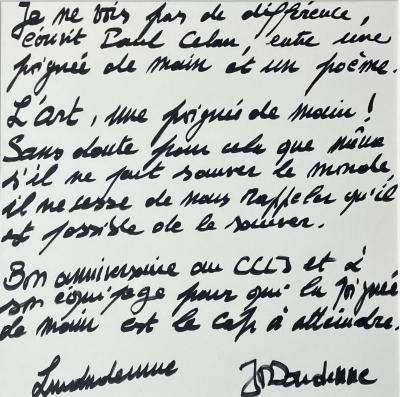 Je ne vois pas de différence,
écrivit Paul Celan, entre une
poignée de main et un poème.
L'art, une poignée de main !
Sans doute pour cela que même
s'il ne peut sauver le monde,
il ne cesse de nous rappeler qu'il
est possible de le sauver.
Bon anniversaire au CCLJ et à
son équipage pour qui la poignée
de main est le cap à atteindre.
Luc Dardenne JP Dardenne